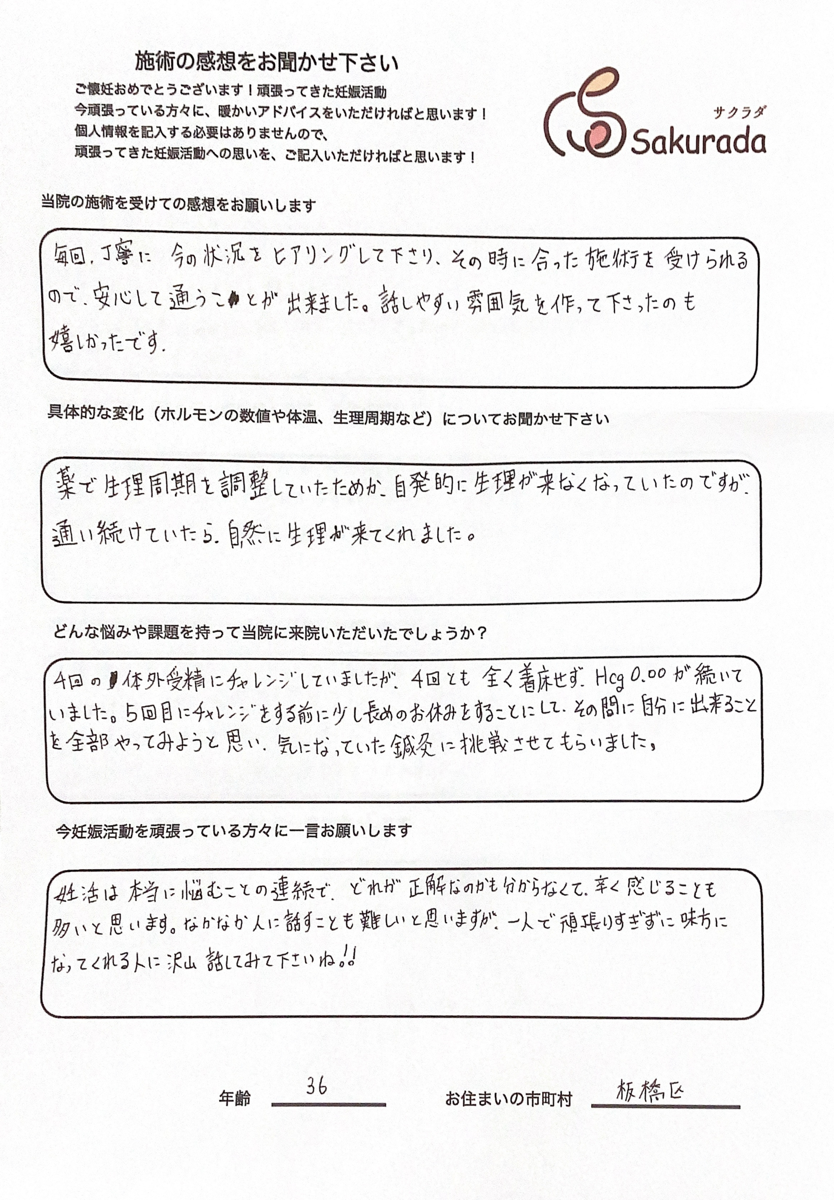 施術の感想をお聞かせ下さい
ご懐妊おめでとうございます！頑張ってきた妊娠活動
今頑張っている方々に、暖かいアドバイスをいただければと思います！
個人情報を記入する必要はありませんので、
頑張ってきた妊娠活動への思いを、ご記入いただければと思います！
サクラダ
Sakurada
当院の施術を受けての感想をお願いします
毎回、丁寧に 今の状況を ヒアリングして下さり、その時に合った施術を受けられる
ので、安心して通うことが出来ました。話しやすい雰囲気を作って下さったのも
嬉しかったです。
具体的な変化（ホルモンの数値や体温、生理周期など）についてお聞かせ下さい
薬で生理周期を調整していたためか、自発的に生理が来なくなっていたのですが、
通い続けていたら、自然に生理が来てくれました。
どんな悩みや課題を持って当院に来院いただいたでしょうか？
4回の体外受精にチャレンジしていましたが、4回とも 全く着床せず、Hcg 0.00が続いて
いました。5回目にチャレンジをする前に少し長めのお休みをすることにして、その間に自分に出来ること
を全部やってみようと思い、気になっていた鍼灸に挑戦させてもらいました。
今妊娠活動を頑張っている方々に一言お願いします
妊活は本当に悩むことの連続で、どれが正解なのかも分からなくて、辛く感じることも
多いと思います。なかなか人に話すことも難しいと思いますが、一人で頑張りすぎずに味方に
なってくれる人に沢山話してみて下さいね!!
年齢 36 お住まいの市町村 板橋区